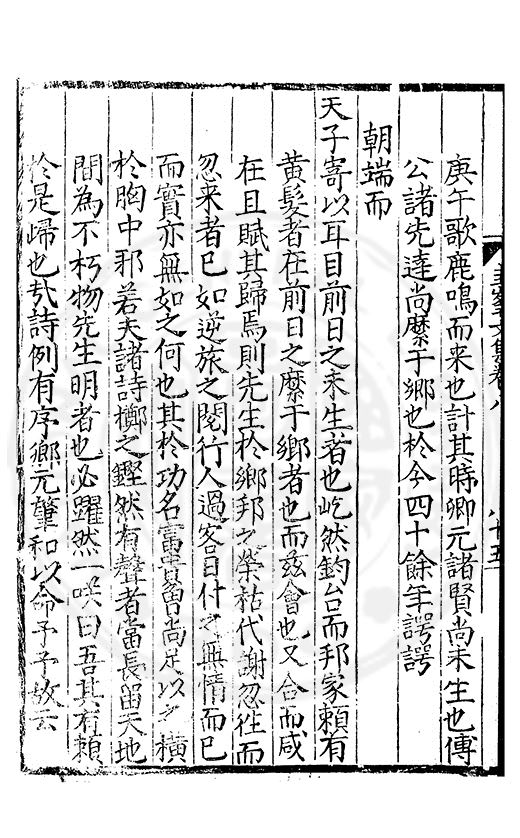 庚午歌鹿鳴而来也計其時卿元諸賢尚未生也傅
公諸先達尚縻于鄉也於今四十餘年諤諤
朝端而
天子寄以耳目前日之未生者也屹然鈞台而邦家賴有
黃髮者在前日之縻于鄉者也而茲會也又合而咸
在且賦其歸焉則先生於鄉邦之榮枯代謝忽往而
忽来者已如逆旅之閱行人過客日付之無情而已
而實亦無如之何也其於功名富貴畨尚足以之橫
於胸中邪若夫諸詩擲之鏗然有聲者當長留天地
間為不朽物先生明者也必躍然一咲曰吾其有賴
於是歸也㢤詩例有序鄉元肇和以命予予故云
卷八
八十五